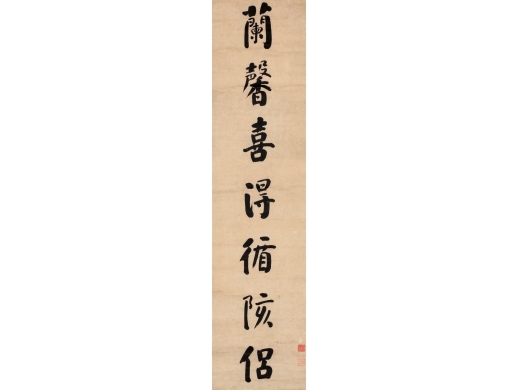 蘭馨喜得循陔侣